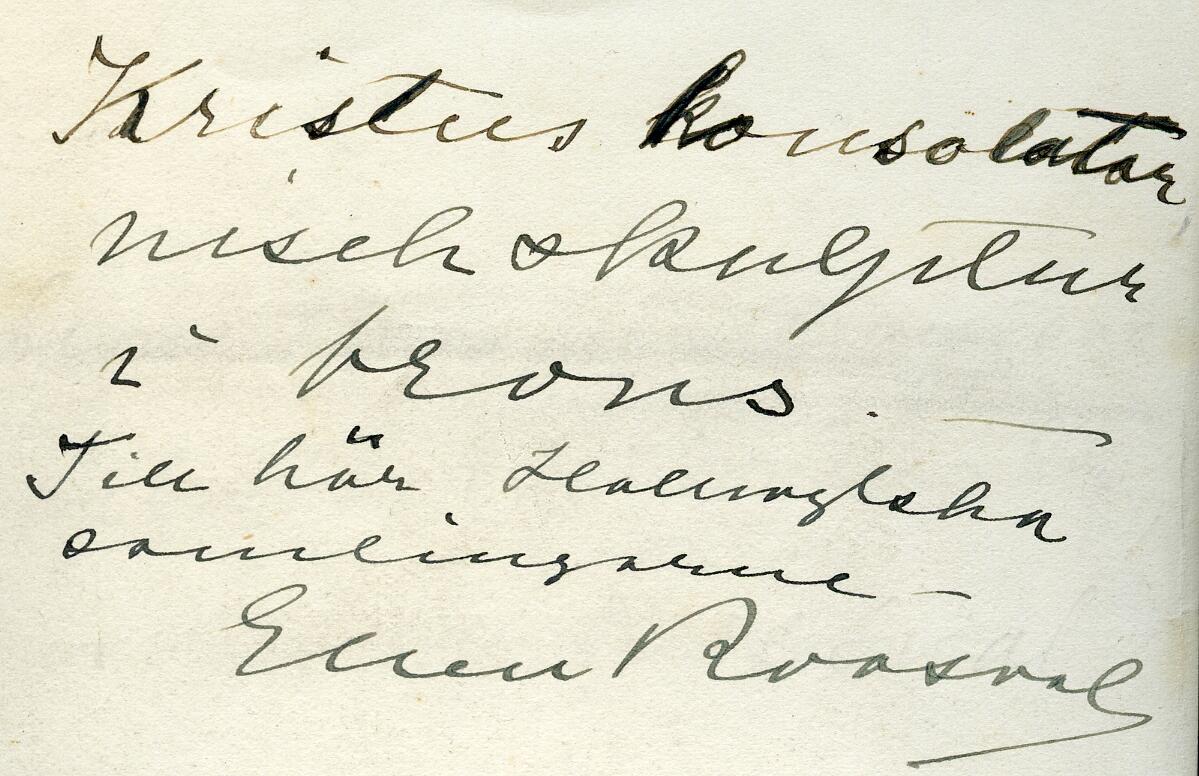 Kristus konsolator
nisch skulptur
i brons.
Till hör Hallwylska
samlingarne
Ellen Roosval